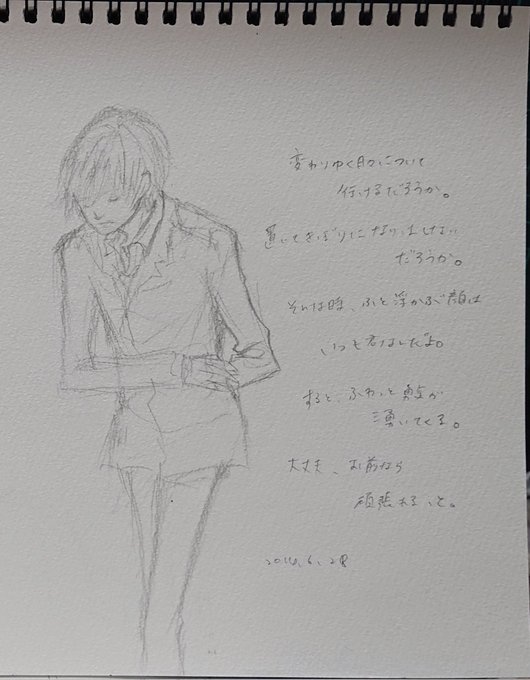 変わりゆく日々について
行けるだろうか。
置いてきぼりになりはしない
だろうか。
そんな時、ふと浮かぶ顔は
いつも君なんだよ。
すると、ふわっと勇気が
湧いてくる。
大丈夫、お前なら
頑張れるっと。
2014.6.28